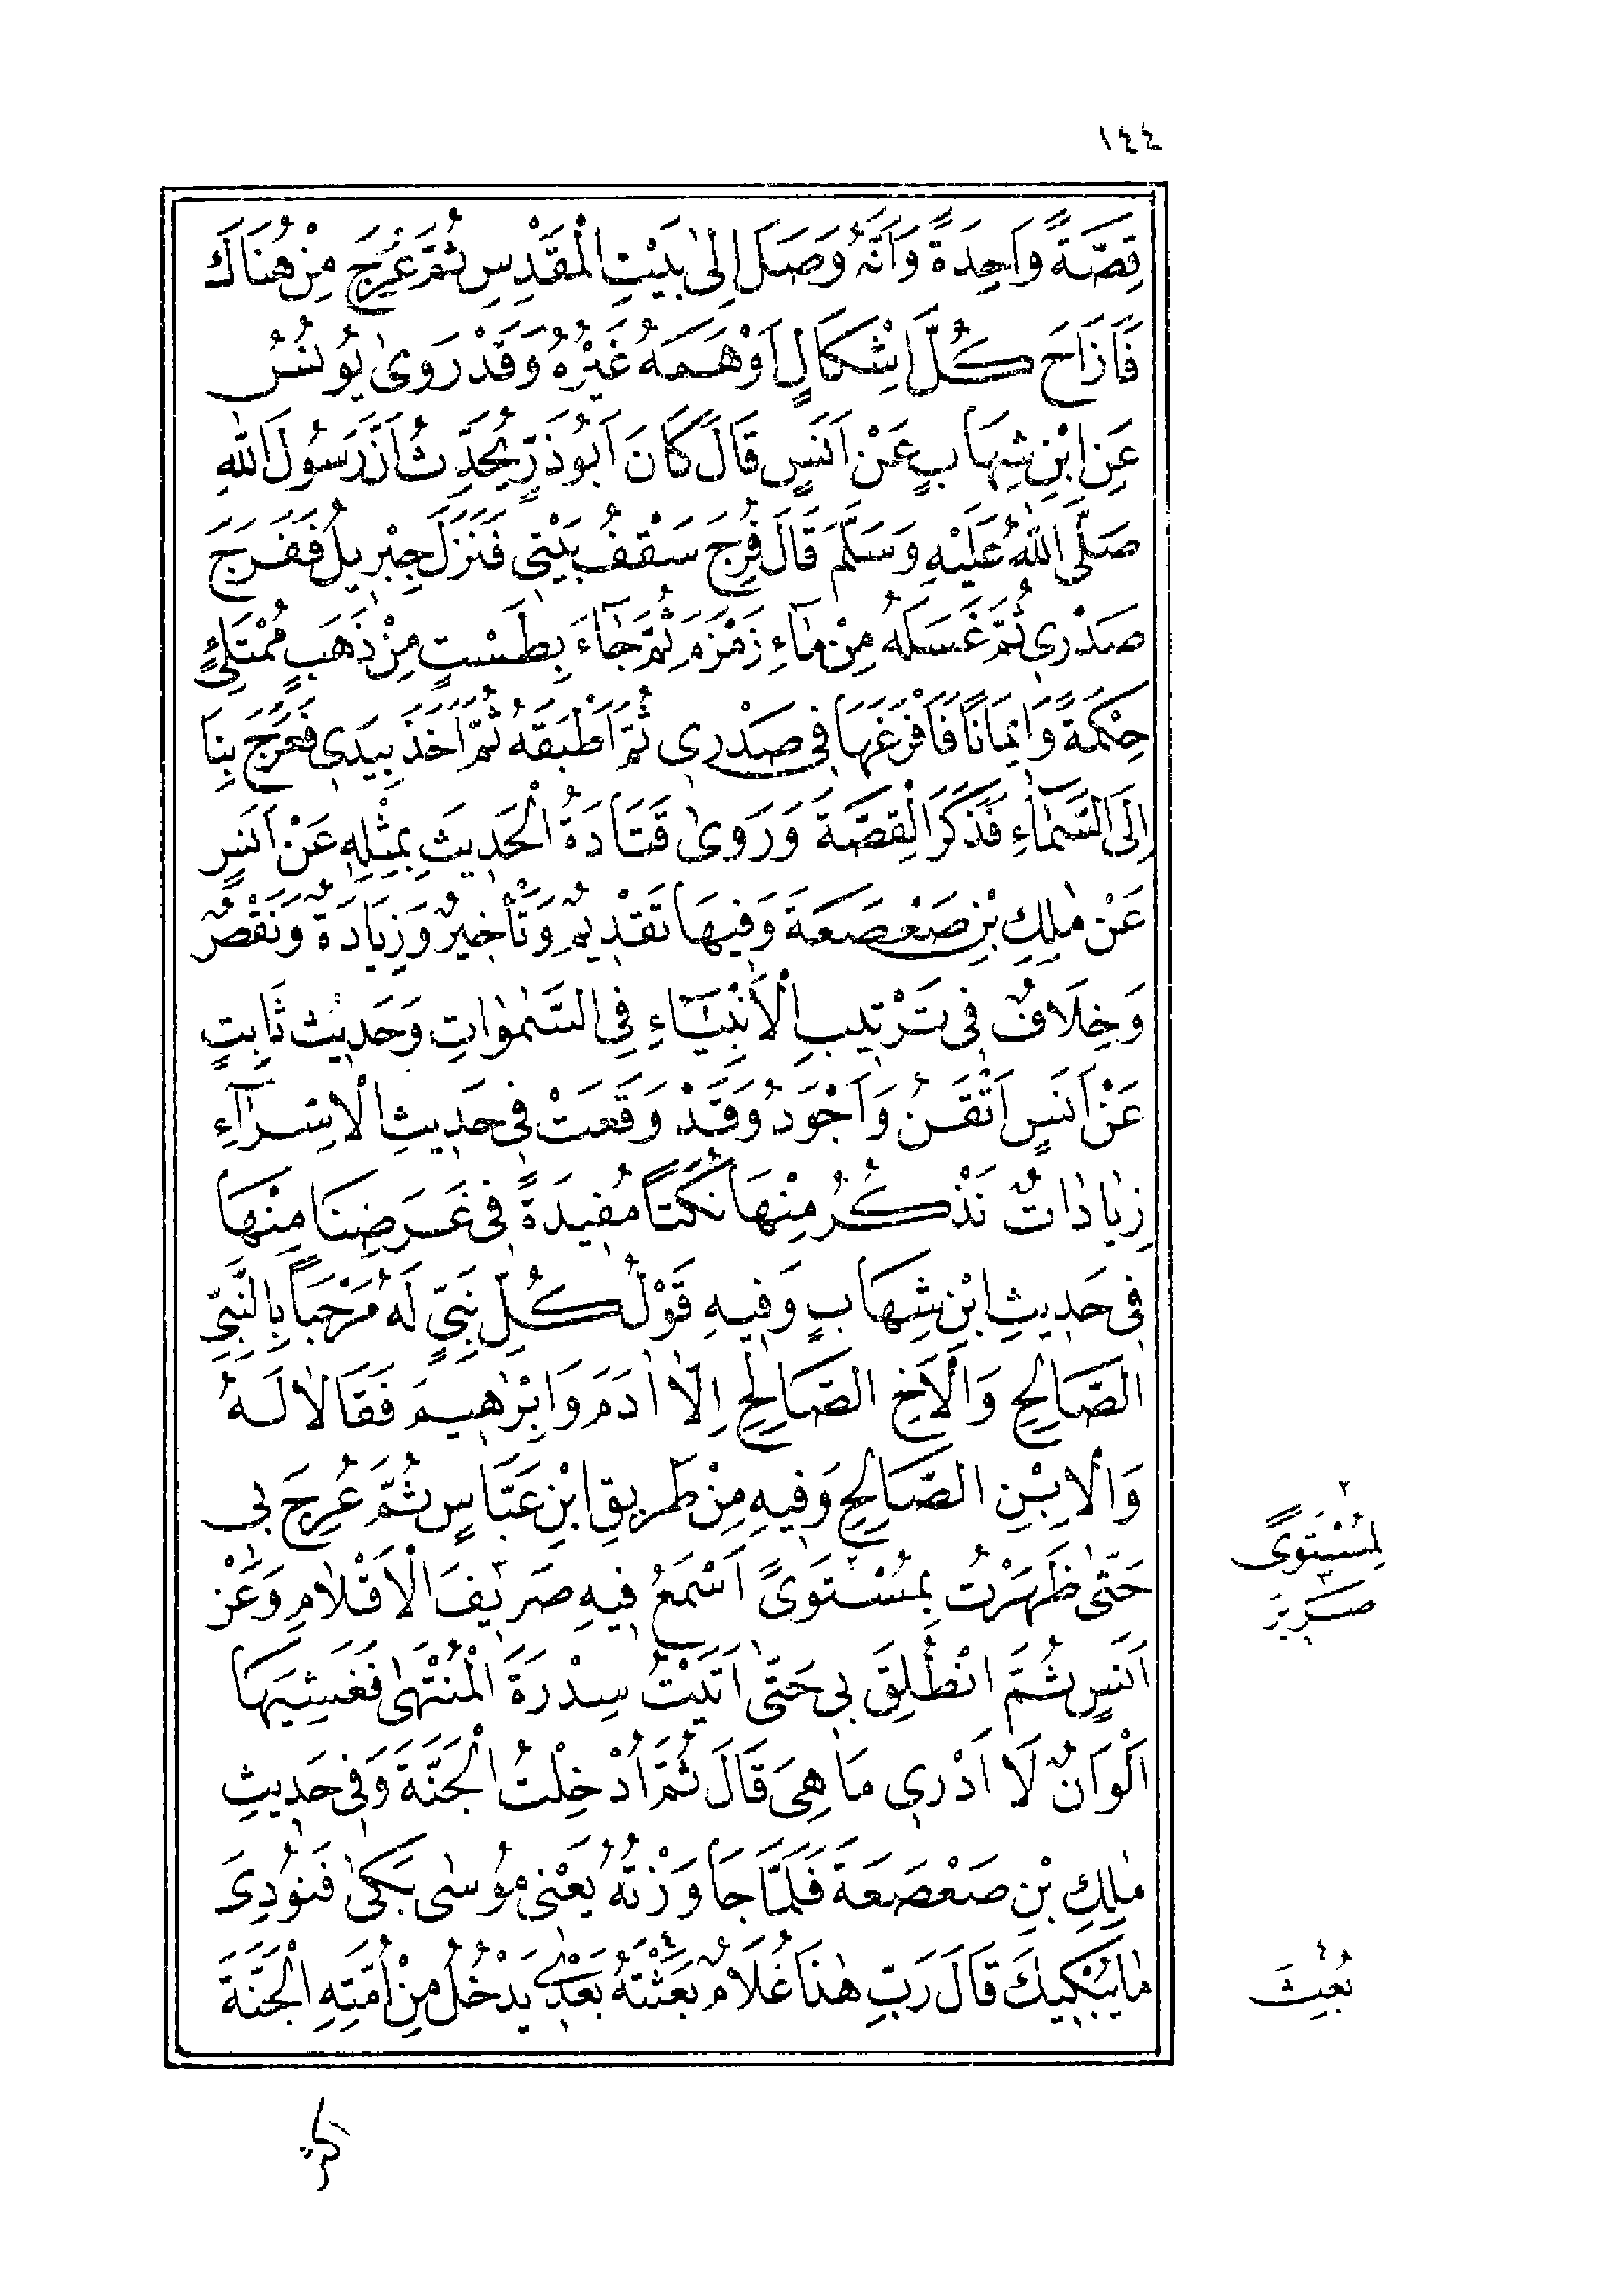 ١٤٤
قِصَّةً وَاحِدَةً وَاَنَّهُ وَصَلَ اِلىٰ بَيْتِ الْمَقْدِسِ ثُمَّ عُرِجَ مِنْ هُنَاكَ
فَاَزَاحَ كُلَّ اِشْكَالٍ اَوْهَمَهُ غَيْرُهُ وَقَدْ رَوىٰ يُونُسُ
عَنِ ابْنِ شِهَابٍ عَنْ اَنَسٍ قَالَ كَانَ اَبُوذَرٍّ يُحَدِّثُ اَنَّ رَسُولَ اللّٰهِ
صَلَّى اللّٰهُ عَلَيْهِ وَسَلَّمَ قَالَ فُرِجَ سَقْفُ بَيْتِى فَنَزَلَ جِبْرِيلُ فَفَرَجَ
صَدْرِى ثُمَّ غَسَلَهُ مِنْ مَاۤءِ زَمْزَمَ ثُمَّ جَاۤءَ بِطَسْتٍ مِنْ ذَهَبٍ مُمْتَلِئٍ
حِكْمَةً وَاِيمَانًا فَاَفْرَغَهَا فِى صَدْرِى ثُمَّ اَطْبَقَهُ ثُمَّ اَخَذَ بِيَدِى فَعَرَجَ بِنَا
اِلَى السَّمَاۤءِ فَذَكَرَ الْقِصَّةَ وَرَوىٰ قَتَادَةُ الْحَدِيثَ بِمِثْلِهِ عَنْ اَنَسٍ
عَنْ مٰلِكِ بْنِ صَعْصَعَةَ وَفِيهَا تَقْدِيمٌ وَتَأْخِيرٌ وَزِيَادَةٌ وَنَقْصٌ
وَخِلَافٌ فِى تَرْتِيبِ الْاَنْبِيَاۤءِ فِى السَّمٰوَاتِ وَحَدِيثُ ثَابِتٍ
عَنْ اَنَسٍ اَتْقَنُ وَاَجْوَدُ وَقَدْ وَقَعَتْ فِى حَدِيثِ الْاِسْرَاۤءِ
زِيَادَاتٌ نَذْكُرُ مِنْهَا نُكَتًا مُفِيدَةً فِى غَرَضِنَا مِنْهَا
فِى حَدِيثِ ابْنِ شِهَابٍ وَفِيهِ قَوْلُ كُلِّ نَبِىٍّ لَهُ مَرْحَبًا بِالنَّبِىِّ
الصَّالِحِ وَالْاَخِ الصَّالِحِ اِلَّا اٰدَمَ وَاِبْرٰهِيمَ فَقَالَا لَهُ
وَالْاِبْنِ الصَّالِحِ وَفِيهِ مِنْ طَرِيقِ ابْنِ عَبَّاسٍ ثُمَّ عُرِجَ بِى
حَتّٰى ظَهَرْتُ بِمُسْتَوًى٢ اَسْمَعُ فِيهِ صَرِيفَ٣ الْاَقْلَامِ وَعَنْ
اَنَسٍ ثُمَّ انْطُلِقَ بِى حَتّٰى اَتَيْتُ سِدْرَةَ الْمُنْتَهىٰ فَغَشِيَهَا
اَلْوَانٌ لَا اَدْرِى مَا هِىَ قَالَ ثُمَّ اُدْخِلْتُ الْجَنَّةَ وَفِى حَدِيثِ
مٰلِكِ بْنِ صَعْصَعَةَ فَلَمَّا جَاوَزْتُهُ يَعْنِى مُوسٰى بَكىٰ فَنُودِىَ
مَا يُبْكِيكَ قَالَ رَبِّ هٰذَا غُلَامٌ بَعَثْتَهُ٤ بَعْدِى يَدْخُلُ مِنْ اُمَّتِهِ الْجَنَّةَ
٢
لِمُسْتَوًى
٣
صَرِيرَ
٤
بُعِثَ